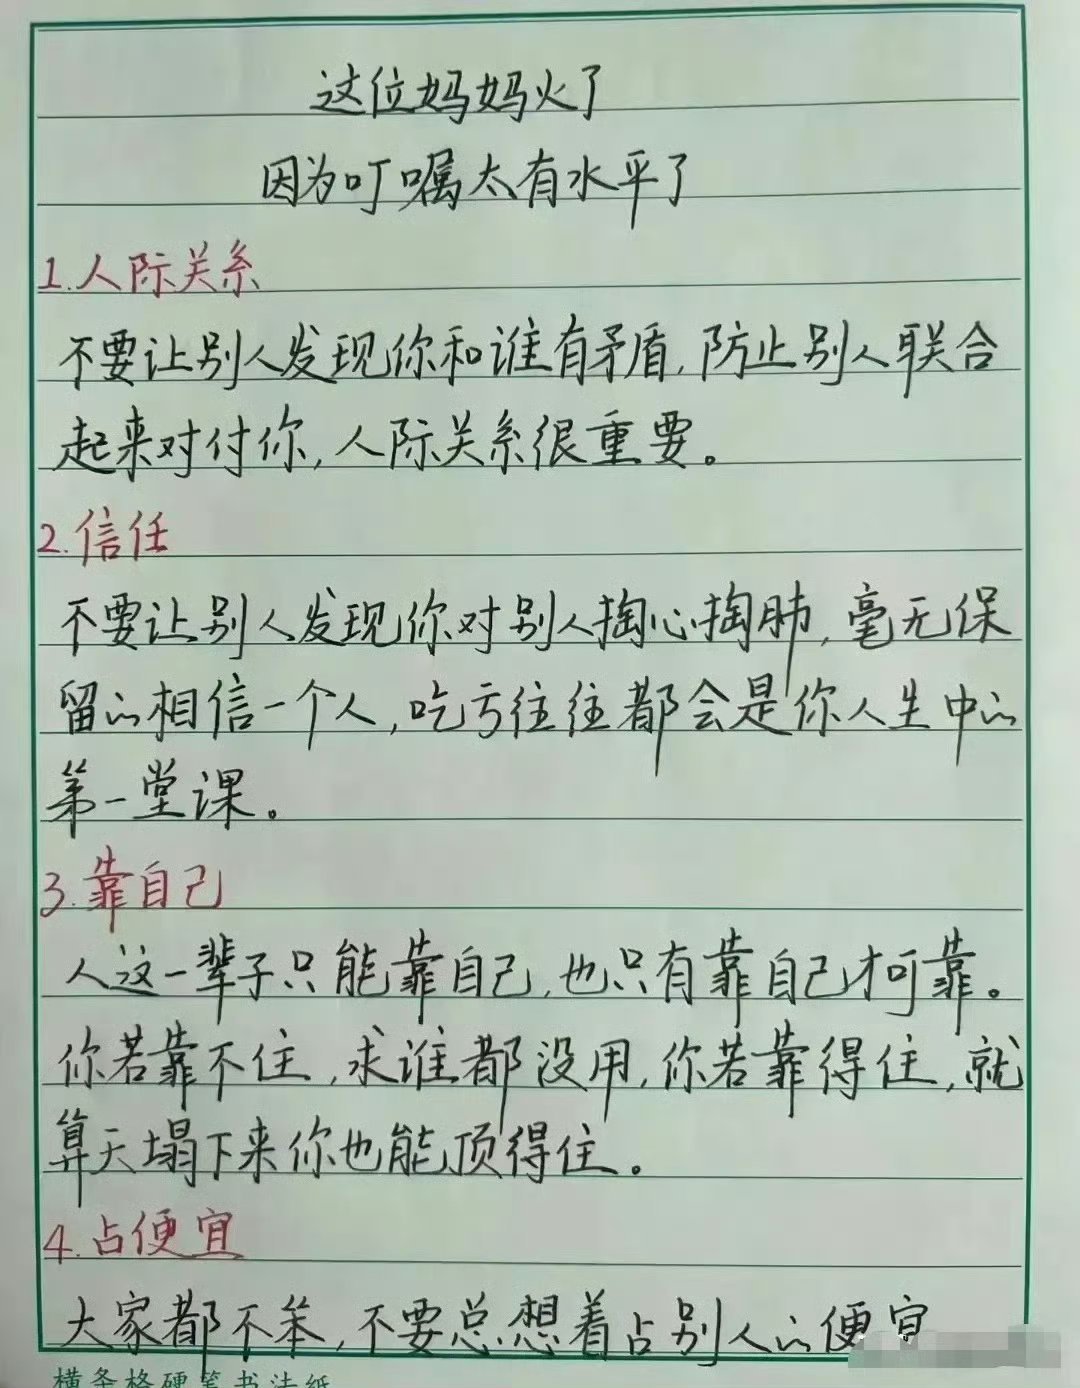 这位妈妈火了
因为叮嘱太有水平了
1.人际关系
不要让别人发现你和谁有矛盾,防止别人联合
起来对付你,人际关系很重要。
2.信任
不要让别人发现你对别人掏心掏肺,毫无保
留的相信一个人,吃亏往往都会是你人生中的
第一堂课。
3.靠自己
人这一辈子只能靠自己,也只有靠自己才可靠。
你若靠不住,求谁都没用,你若靠得住,就
算天塌下来你也能顶得住。
4.占便宜
大家都不笨,不要总想着占别人的便宜
横条格硬笔书法纸